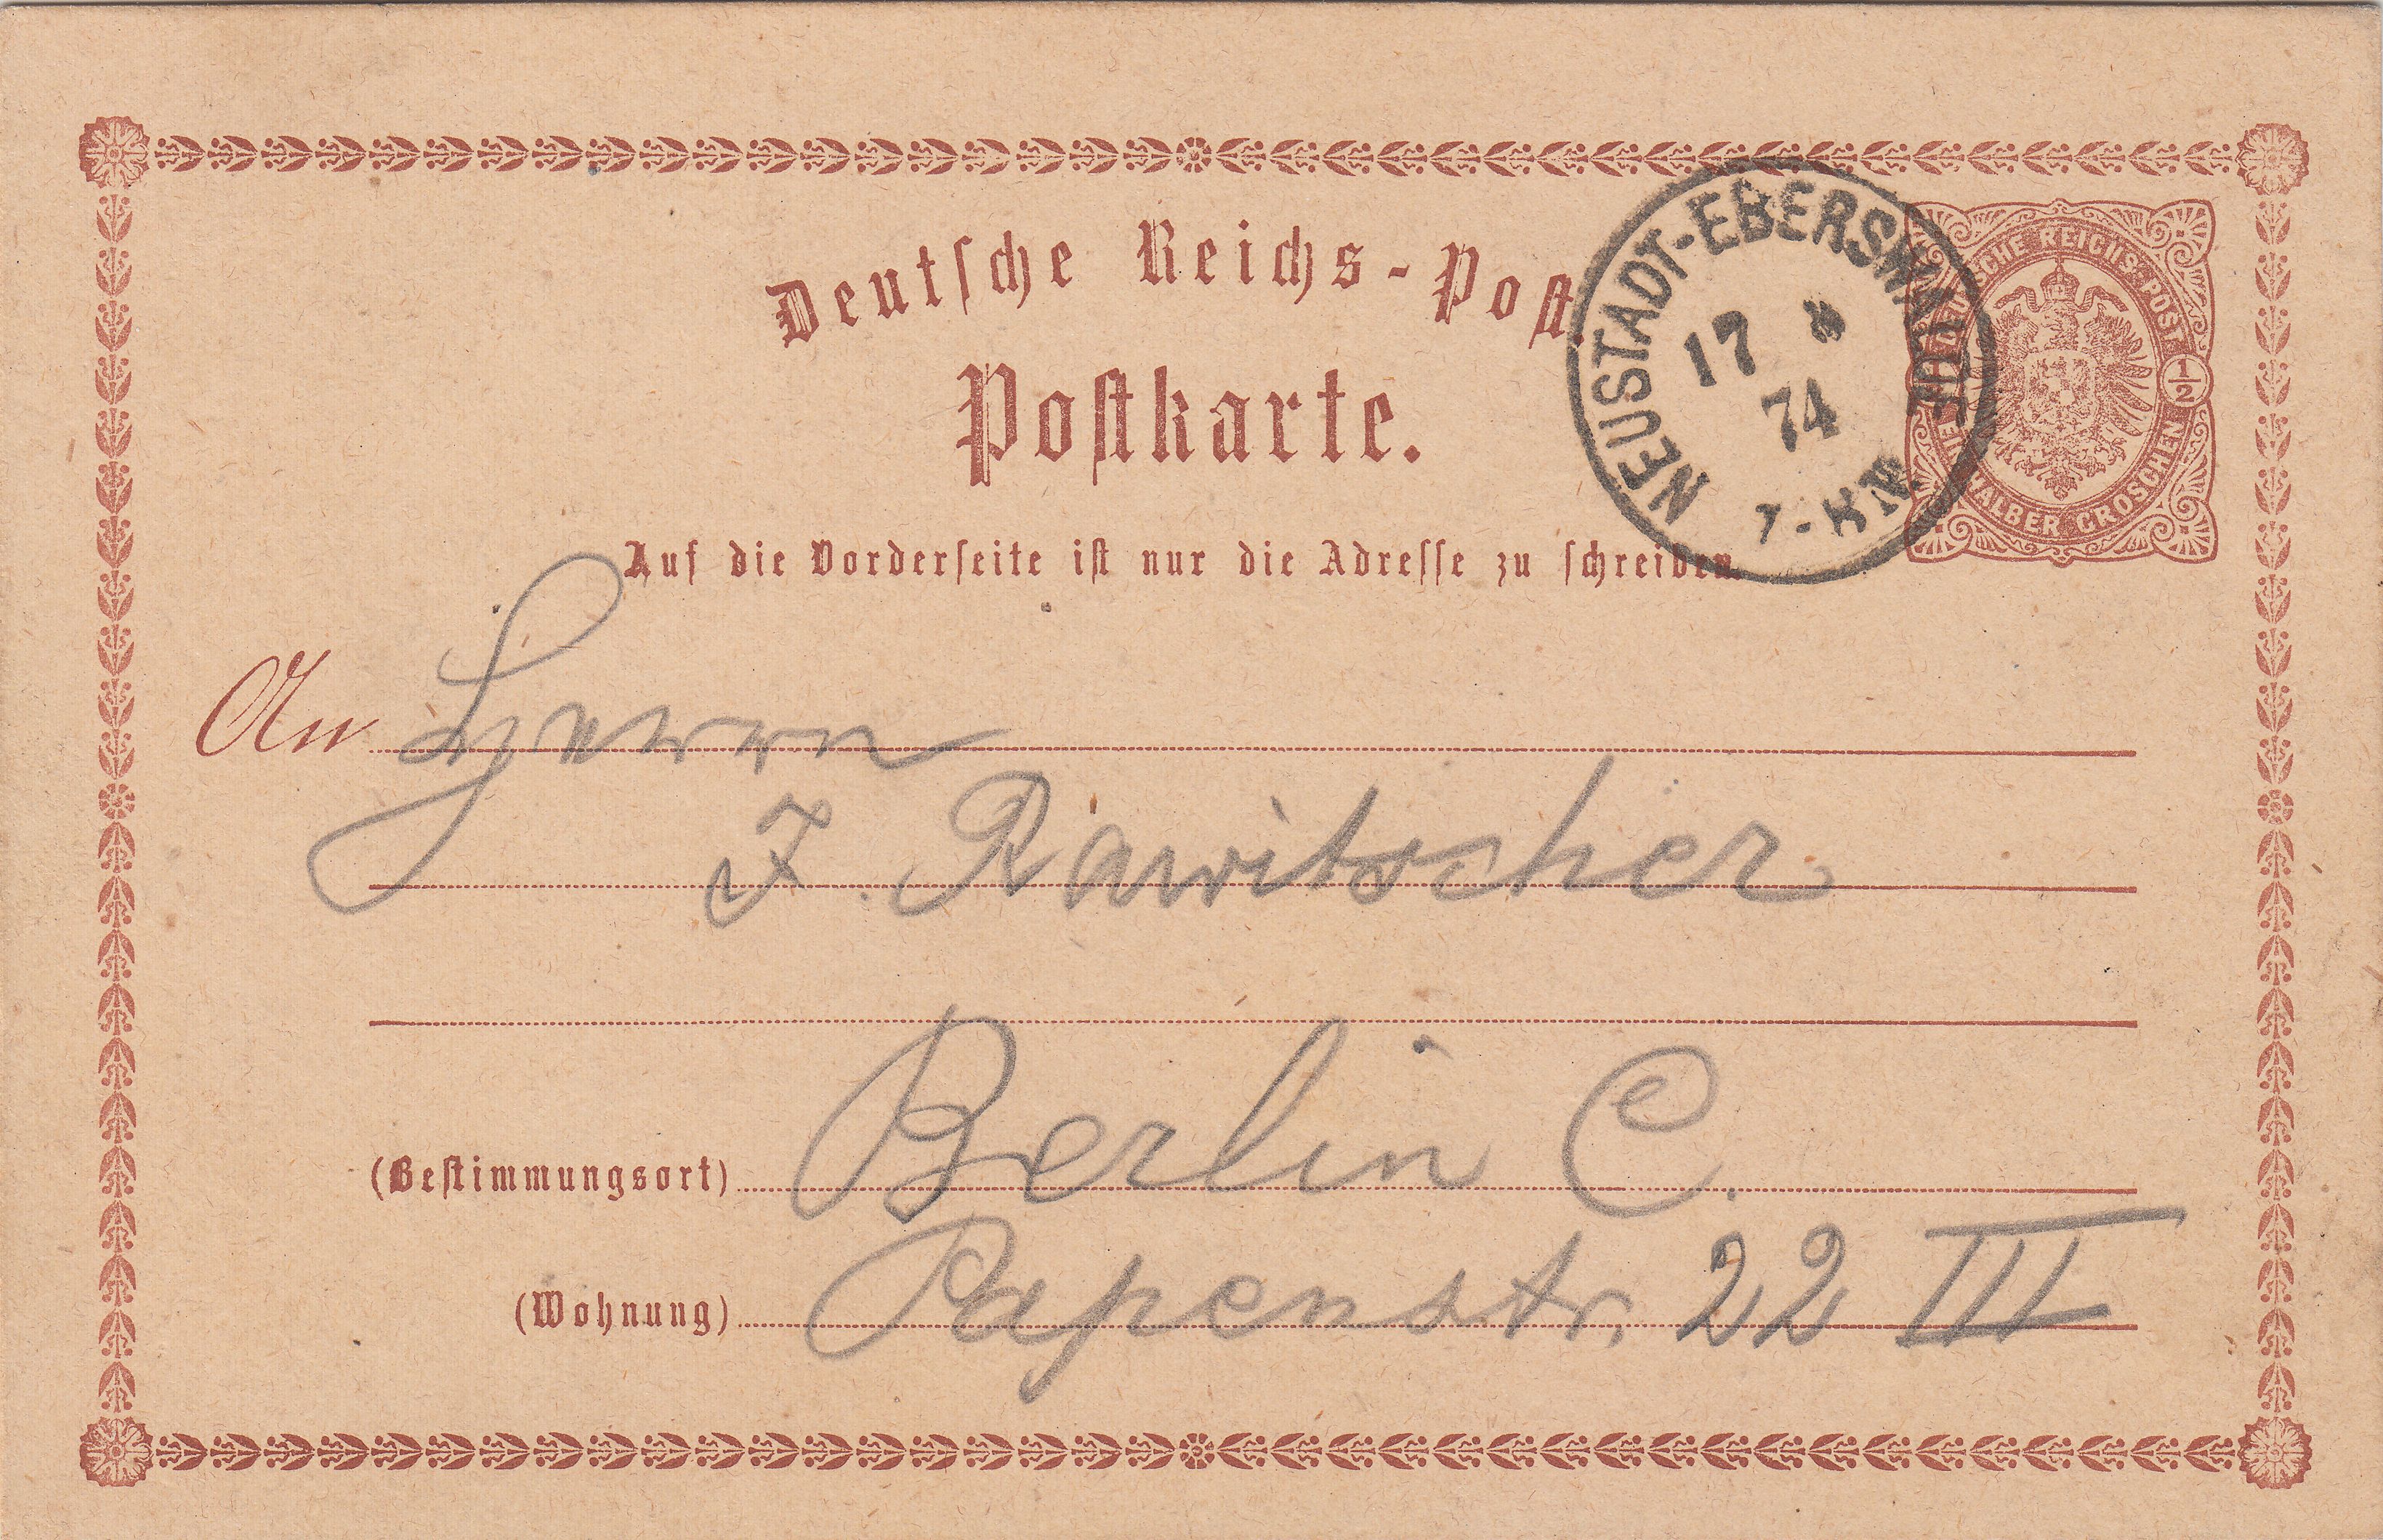 Deutsche Reichs-Post.
Postkarte.
NEUSTADT-EBERSWALDE
17 8
74
7-8 N.
DEUTSCHE REICHS-POST
1/2
EIN HALBER GROSCHEN
Auf die Vorderseite ist nur die Adresse zu schreiben.
An Herrn
J. Rawitscher
(Bestimmungsort) Berlin C.
(Wohnung) Papenstr. 22 III